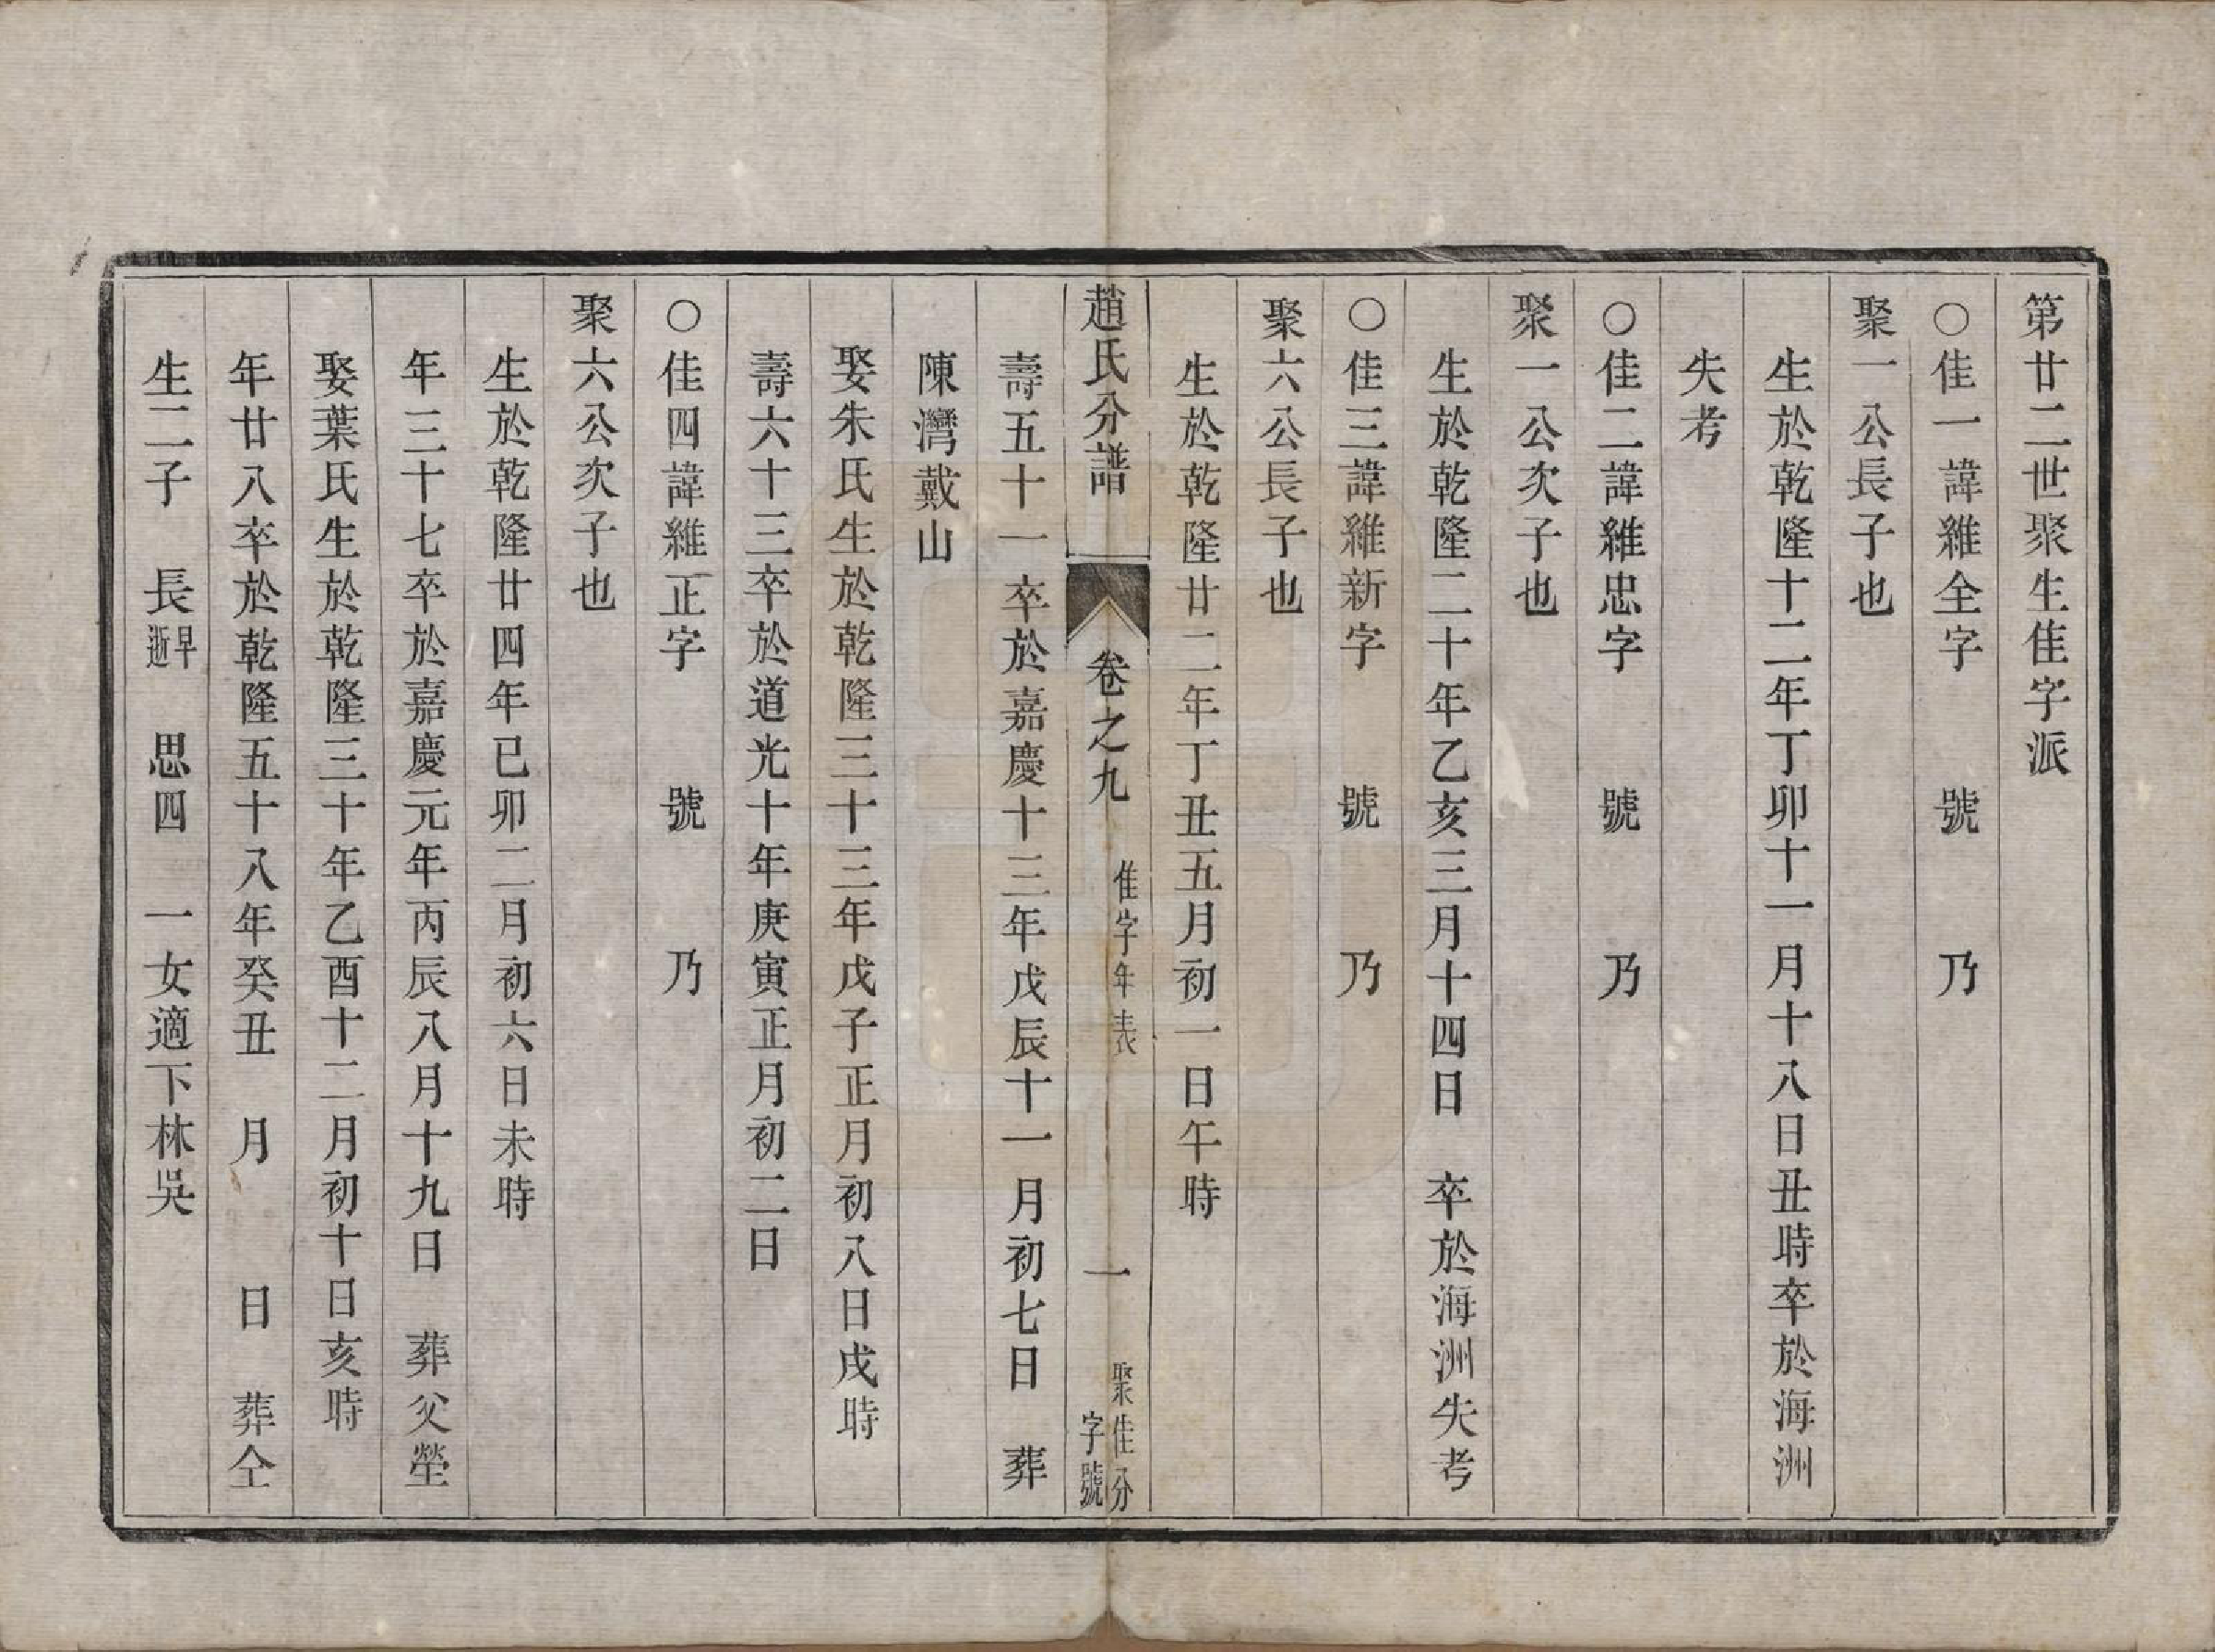 第廿二世聚生佳字派
○佳一諱維全字　　號　　乃
聚一公長子也
生於乾隆十二年丁卯十一月十八日丑時卒於海洲
失考
○佳二諱維忠字　　號　　乃
聚一公次子也
生於乾隆二十年乙亥三月十四日　卒於海洲失考
○佳三諱維新字　　號　　乃
聚六公長子也
生於乾隆廿二年丁丑五月初一日午時
趙氏分譜　卷之九　佳字年表　一　聚佳分字號
壽五十一卒於嘉慶十三年戊辰十一月初七日　葬
陳灣戴山
娶朱氏生於乾隆三十三年戊子正月初八日戌時
壽六十三卒於道光十年庚寅正月初二日
○佳四諱維正字　　號　　乃
聚六公次子也
生於乾隆廿四年已卯二月初六日未時
年三十七卒於嘉慶元年丙辰八月十九日　葬父塋
娶葉氏生於乾隆三十年乙酉十二月初十日亥時
年廿八卒於乾隆五十八年癸丑　月　　日　葬仝
生二子　長早逝　思四　一女適下林吳